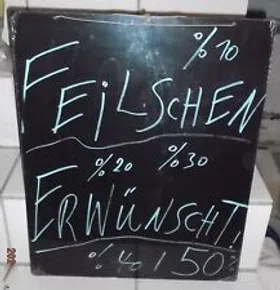 %10
FEiLSCHEN
%20 %30
ERWÜNSCHT!
%40 / 50%